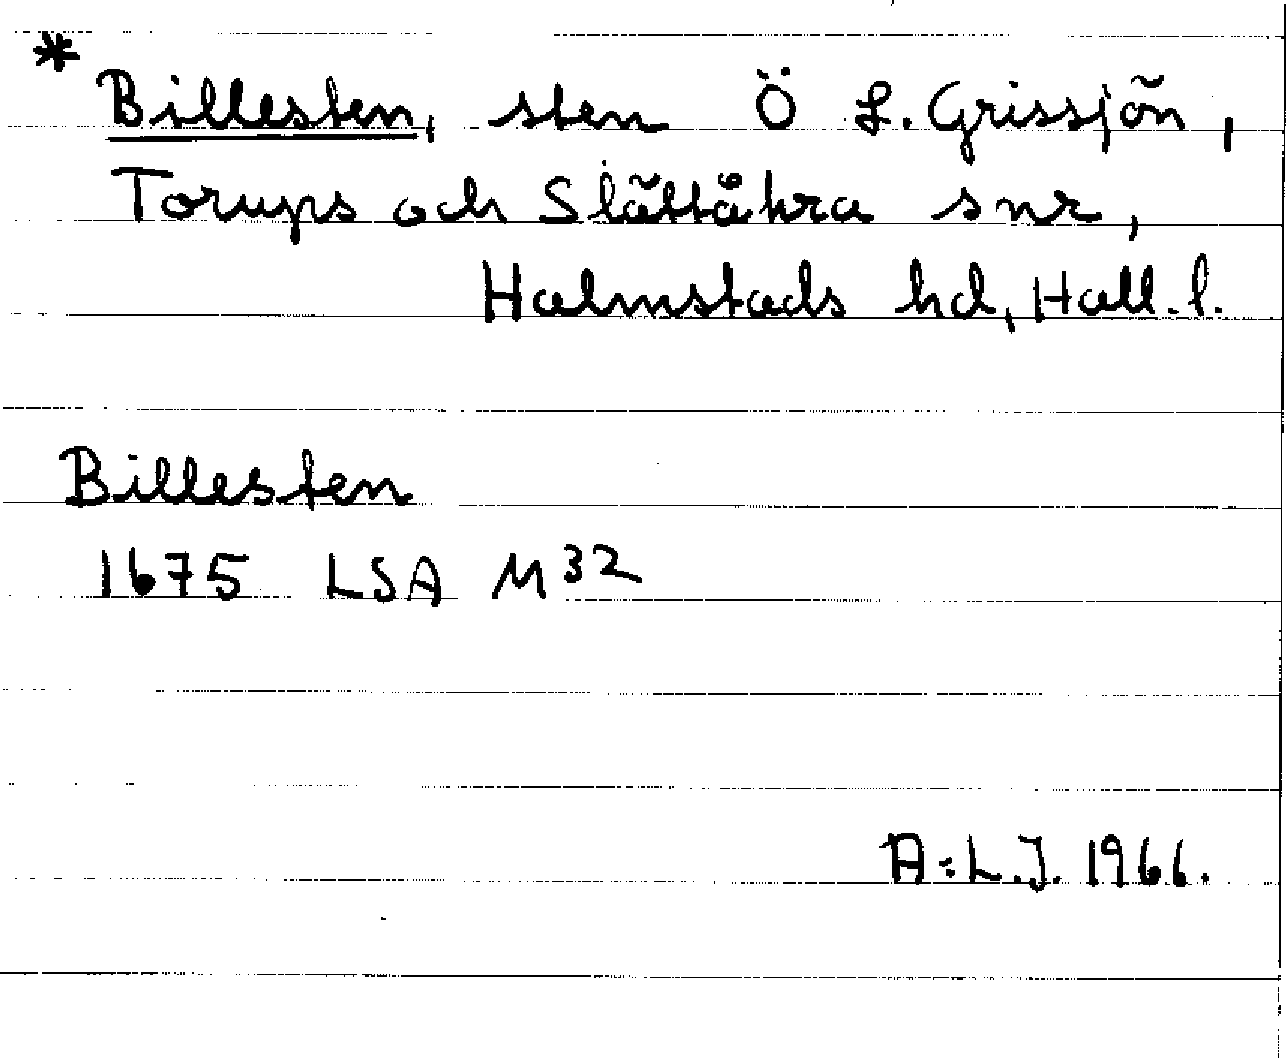 * Billesten, sten Ö L. Grissjön,
Torups och Slättåkra snr,
Halmstads hd, Hall. l.
Billesten
1675 LSA M32
A:L.J. 1966.